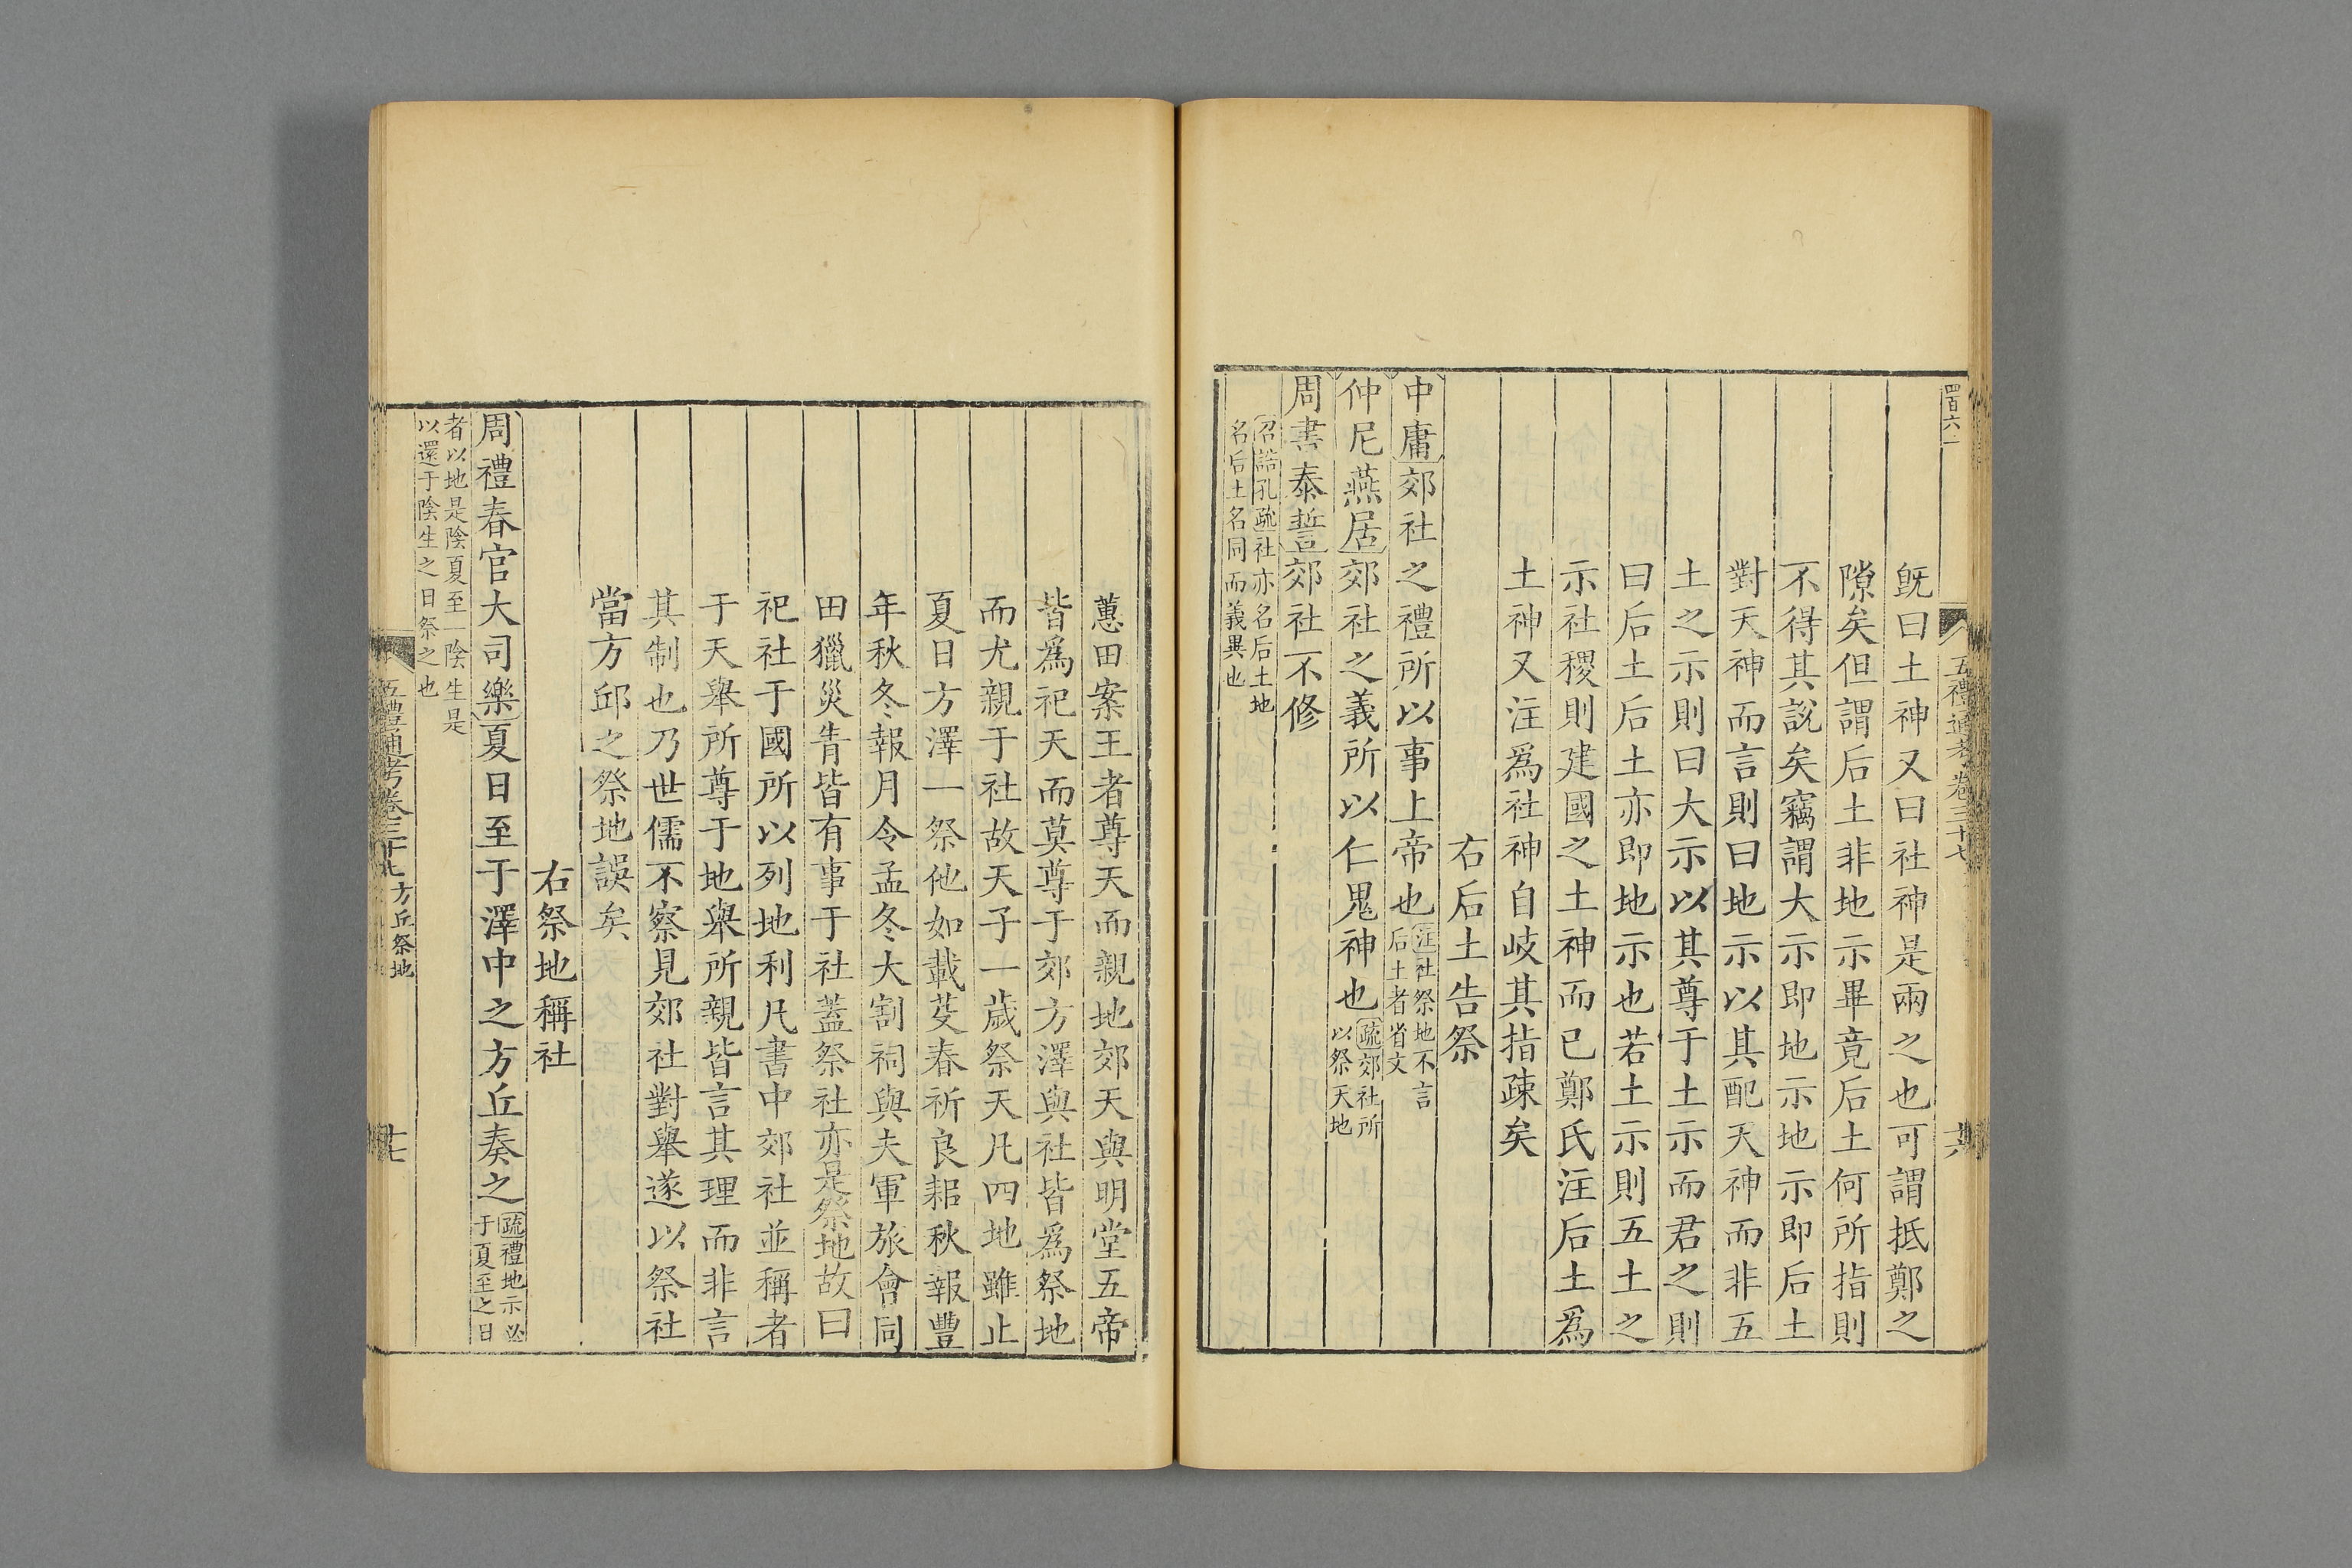 四百六一
五禮通考卷三十七
既曰土神又曰社神是兩之也可謂抵鄭之
隙矣但謂后土非地示畢竟后土何所指則
不得其說矣竊謂大示即地示地示即后土
對天神而言則曰地示以其配天神而非五
土之示則曰大示以其尊于土示而君之則
曰后土后土亦即地示也若土示則五土之
示社稷則建國之土神而已鄭氏注后土為
土神又注為社神自歧其指疎矣
右后土告祭
中庸郊社之禮所以事上帝也注社祭地不言
后土者省文
仲尼燕居郊社之義所以仁鬼神也疏郊社所
以祭天地
周書泰誓郊社不修
召誥孔疏社亦名后土地
名后土名同而義異也
蕙田案王者尊天而親地郊天與明堂五帝
皆爲祀天而莫尊于郊方澤與社皆爲祭地
而尤親于社故天子一歲祭天凡四地雖止
夏日方澤一祭他如載芟春祈良耜秋報豐
年秋冬報月令孟冬大割祠與夫軍旅會同
田獵災眚皆有事于社蓋祭社亦是祭地故曰
祀社于國所以列地利凡書中郊社並稱者
于天舉所尊于地舉所親皆言其理而非言
其制也乃世儒不察見郊社對舉遂以祭社
當方邱之祭地誤矣
右祭地稱社
周禮春官大司樂夏日至于澤中之方丘奏之疏禮地示必
于夏至之日
者以地是陰夏至一陰生是
以還于陰生之日祭之也
五禮通考卷三十七 方丘祭地
七